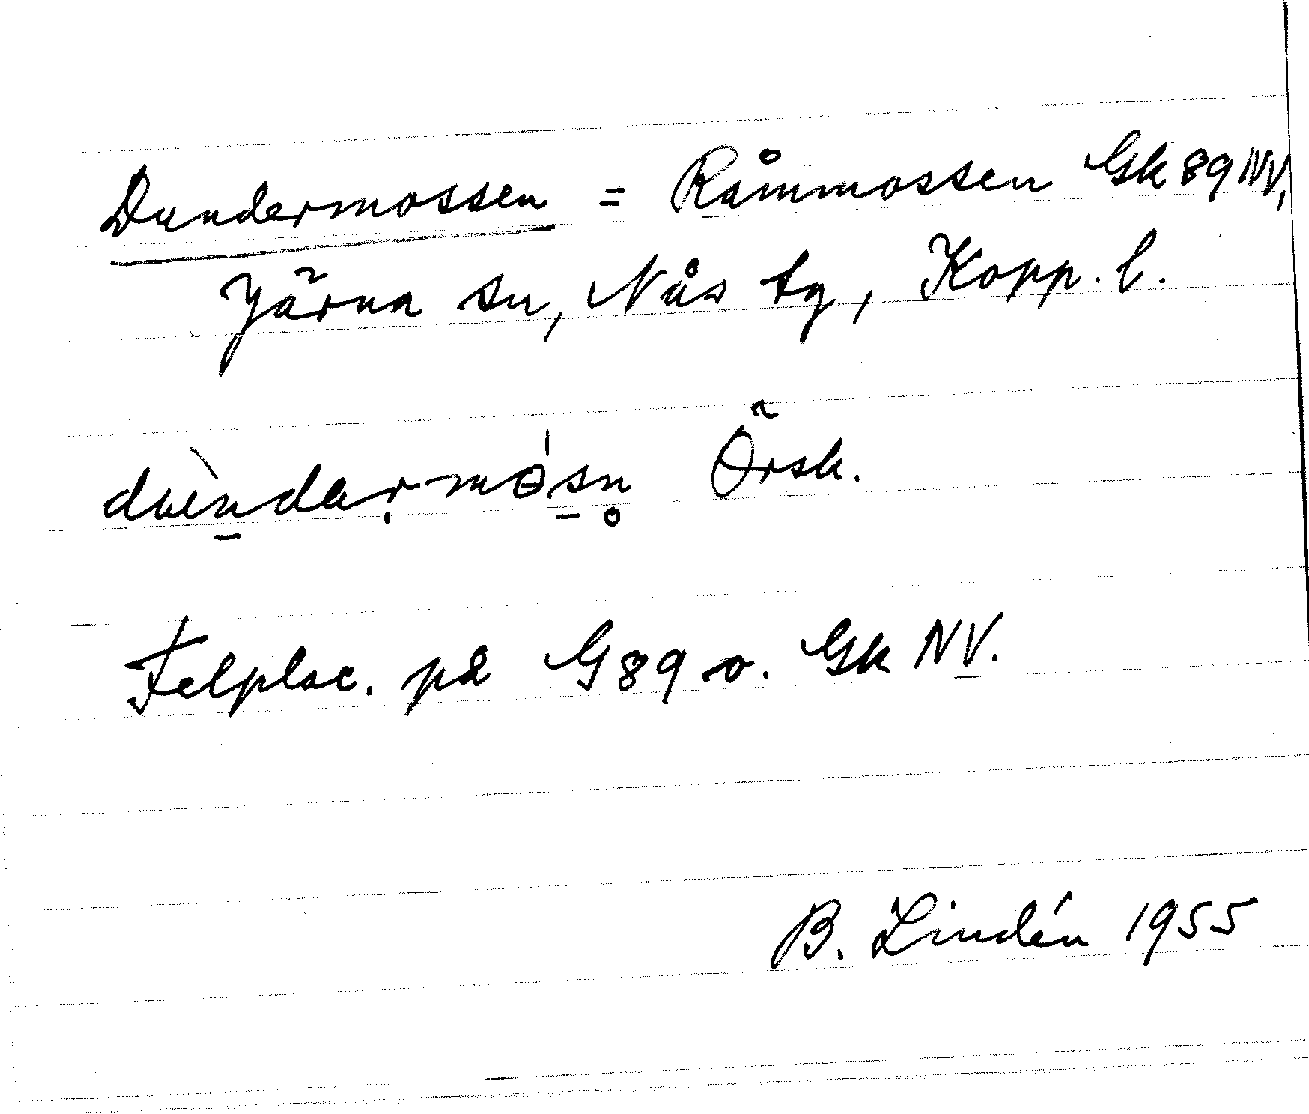 Dundermossen = Råmmossen Gk 89 NV,
Järna sn, Nås tg, Kopp. l.
Örsk.
Felplac. på G 89 o. Gk NV.
B. Lindén 1955